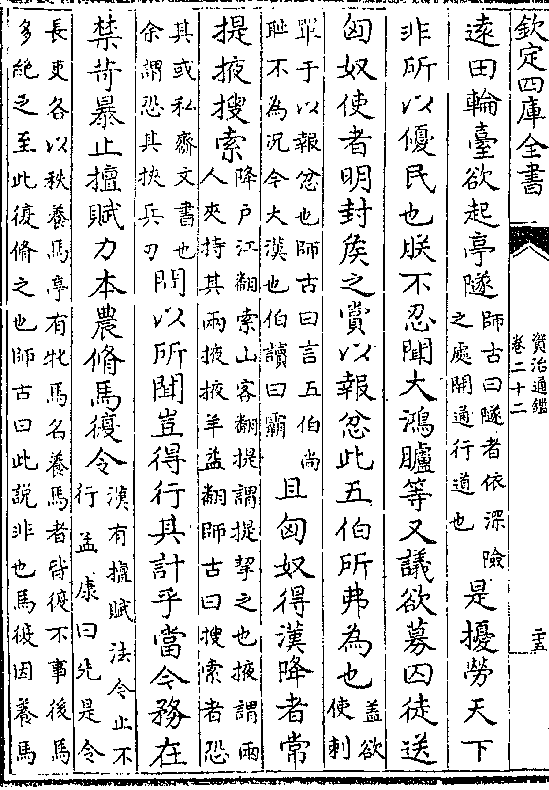 欽定四庫全書
資治通鑑
卷二十二
遠田輪臺欲起亭隧
師古曰隧者依深險
之處開通行道也
是擾勞天下
非所以優民也朕不忍聞大鴻臚等又議欲募囚徒送
匈奴使者明封侯之賞以報忿此五伯所弗為也
蓋欲
使刺
單于以報忿也師古曰言五伯尚
耻不為況今大漢也伯讀曰霸
且匈奴得漢降者常
提掖搜索
降戶江翻索山客翻提謂提挈之也掖謂兩
人夾持其兩掖掖羊益翻師古曰搜索者恐
其或私齎文書也
余謂恐其挾兵刃
問以所聞豈得行其計乎當今務在
禁苛暴止擅賦力本農脩馬復令
漢有擅賦法令止不
行孟康曰先是令
長吏各以秩養馬亭有牝馬名養馬者皆復不事後馬
多絶乏至此復脩之也師古曰此說非也馬復因養馬